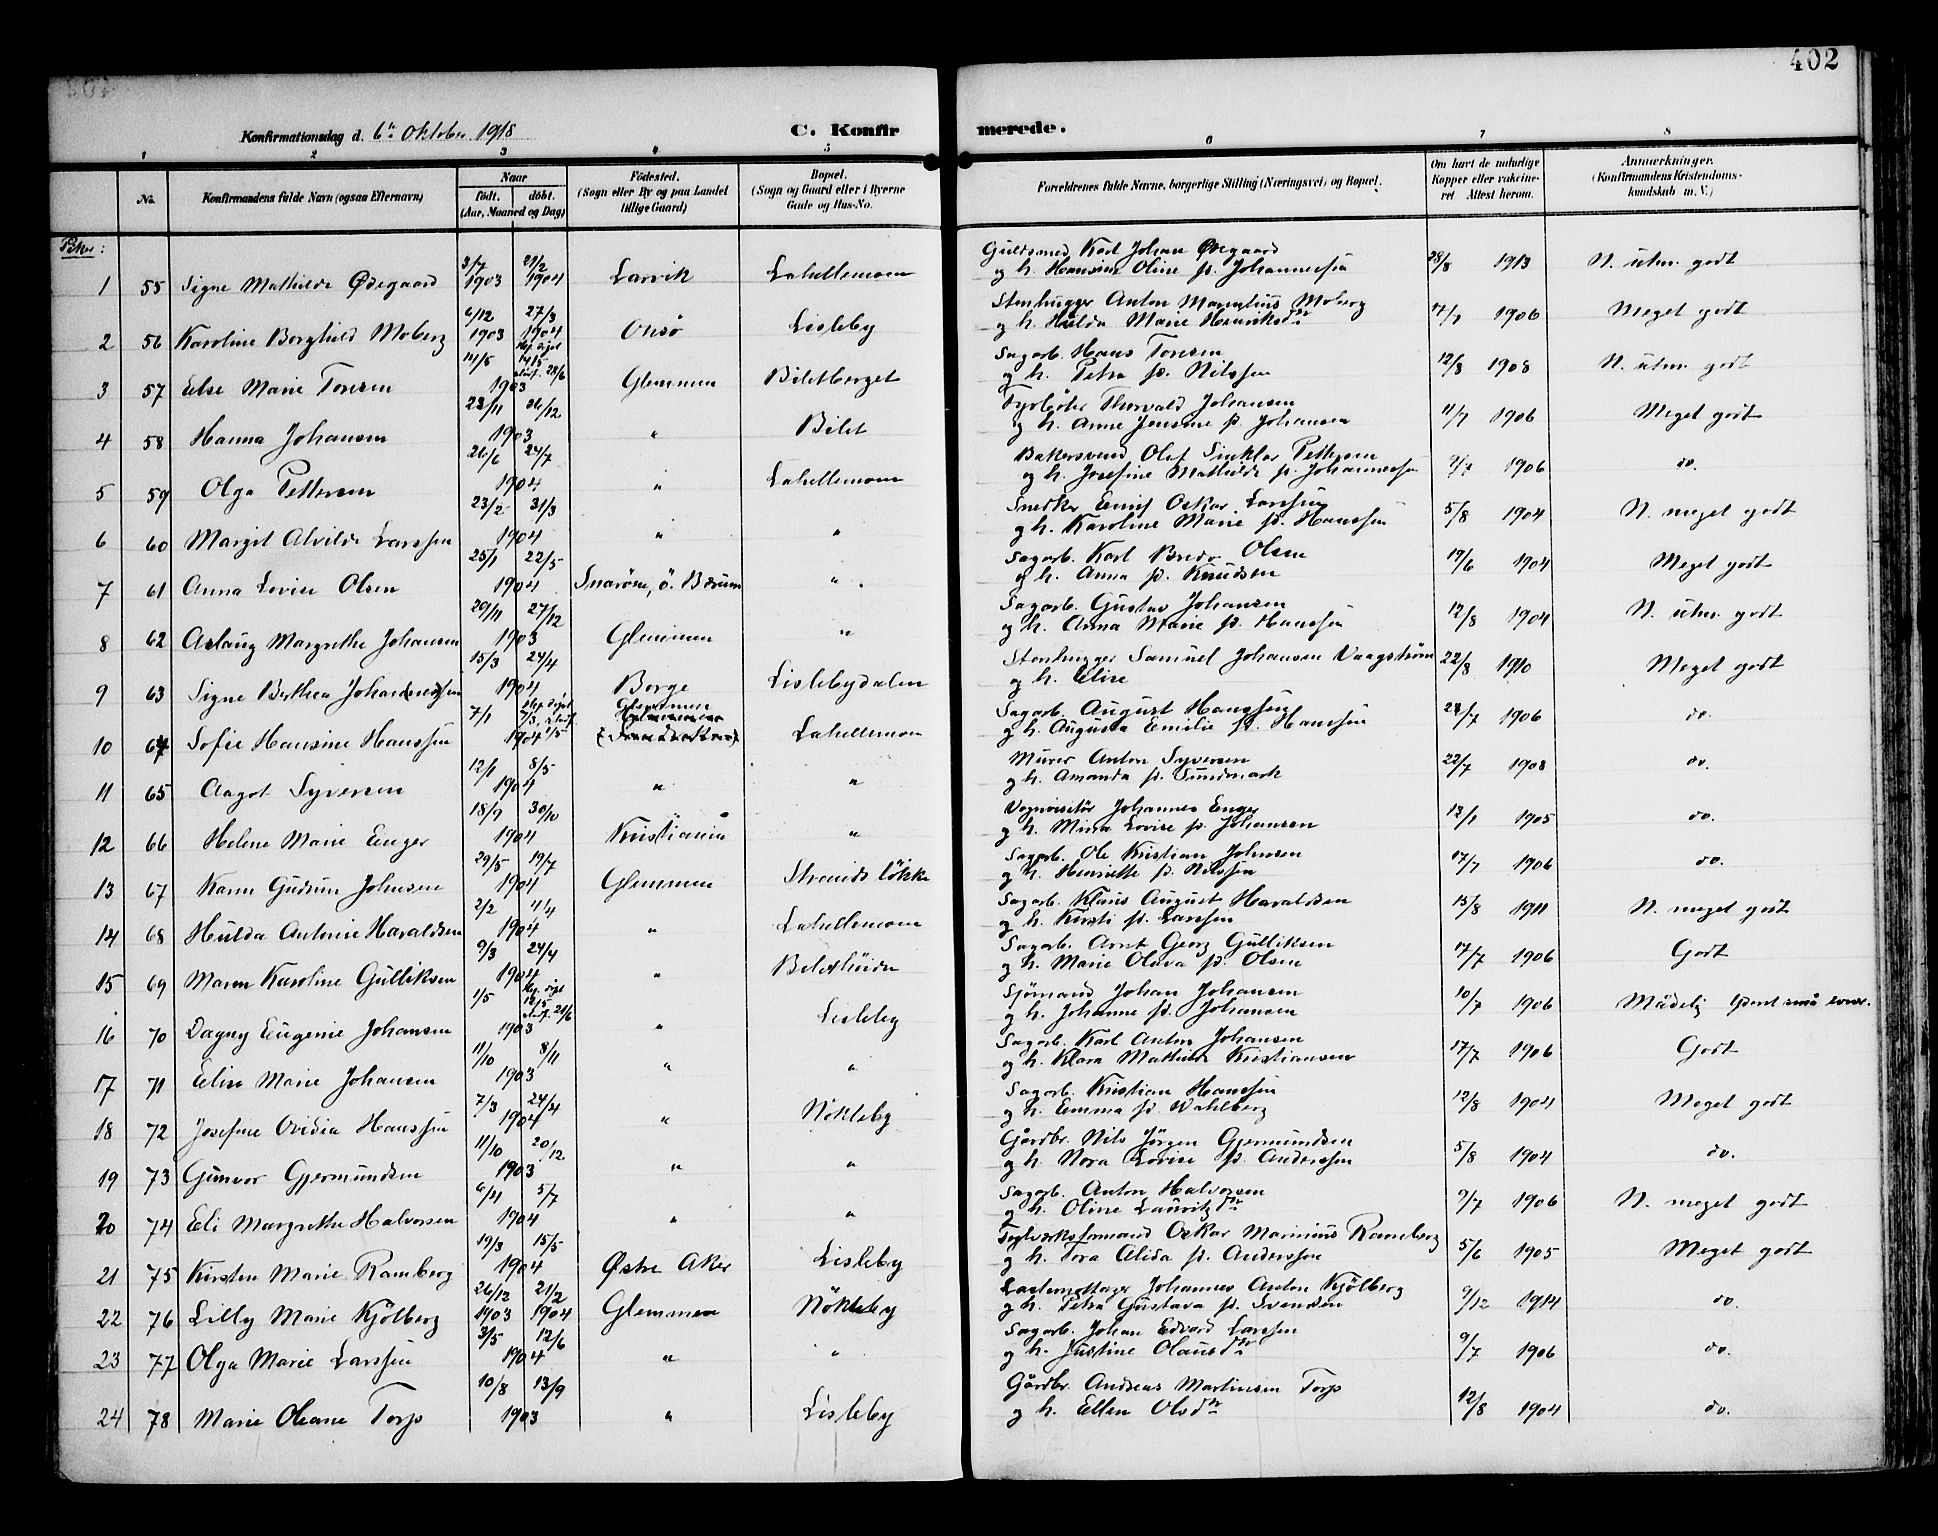 402
Konfirmationsdag d. 6te Oktober 1918
C. Konfir merede.
1 2 3 4 5 6 7 8
No.
Konfirmandens fulde Navn (ogsaa Efternavn)
Naar
født. døbt.
(Aar, Maaned og Dag)
Fødested.
(Sogn eller By og paa Landet
tillige Gaard)
Bopæl.
(Sogn og Gaard eller i Byerne
Gade og Hus-No.
Forældrenes fulde Navne, borgerlige Stilling (Næringsvei) og Bopæl.
Om havt de naturlige
Kopper eller vakcine-
ret Attest herom.
Anmerkninger.
(Konfirmandens Kristendoms-
kundskab m. V.)
Piker:
1 55 Signe Mathilde Ødegaard 3/7 1903 21/2 1904 Larvik Lahellemoen Guldsmed Karl Johan Ødegaard
og h. Hansine Oline f. Johannessen 28/8 1913 N. utm. godt
2 56 Karoline Borghild Moberg 6/12 1903 27/3 1904 Onsø Lisleby Stenhugger Anton Marentius Moberg
og h. Hulda Marie Henriksdtr 17/7 1906 Meget godt
3 57 Else Marie Toresen 14/5 1903 28/6 Glemmen Biletberget Sagarb. Hans Toresen
og h. Petra f. Nilssen 12/8 1908 N. utm. godt
4 58 Hanna Johansen 23/11 26/12 1903 " Bilet Fyrbøter Thorvald Johansen
og h. Anne Jensine f. Johansen 11/7 1906 Meget godt
5 59 Olga Pettersen 26/6 24/7 1904 " Lahellemoen Bakersvend Olof Sinklar Pettersen
og h. Josefine Mathilde f. Johannessen 9/7 1906 do.
6 60 Margit Alvilde Larssen 23/2 31/3 1904 " " Snedker Ernst Oskar Larssen
og h. Karoline Marie f. Hanssen 5/8 1904 N. meget godt
7 61 Anna Lovise Olsen 25/1 22/5 1904 Snarøen, ö. Bærum " Sagarb. Karl Bredo Olsen
og h. Anna f. Knudsen 17/6 1904 Meget godt
8 62 Aslaug Margrethe Johansen 29/11 27/12 1903 Glemmen " Sagarb. Gustav Johansen
og h. Anna Marie f. Hanssen 12/8 1904 N. utm. godt
9 63 Signe Berthea Johan(nes)sen 15/3 24/4 1904 Borge Lislebydalen Stenhugger Samuel Johansen Vaagstrøm
og h. Elise 22/8 1910 Meget godt
10 64 Sofie Hansine Hanssen 7/1 1904 Glemmen Lahellemoen Sagarb. August Hanssen
og h. Augusta Emilie f. Hanssen 28/7 1906 do.
11 65 Aagot Syversen 12/1 8/5 1904 " " Murer Anton Syversen
og h. Amanda f. Sundmark 22/7 1908 do.
12 66 Helene Marie Enger 18/9 30/10 1904 Kristiania " Vognvisitør Johannes Enger
og h. Mina Lovise f. Johansen 13/1 1905 do.
13 67 Karen Gudrun Johnsen 29/5 17/7 1904 Glemmen Strands løkke Sagarb. Ole Kristian Johnsen
og h. Henriette f. Nilssen 17/7 1906 do.
14 68 Hulda Antonie Haraldsen 2/2 4/4 1904 " Lahellemoen Sagarb. Klaus August Haraldsen
og h. Kirsti f. Larssen 15/8 1911 N. meget godt
15 69 Maren Karoline Gulliksen 9/3 24/4 1904 " Bilet Sagarb. Arnt Georg Gulliksen
og h. Marie Olava f. Olsen 17/7 1906 Godt
16 70 Dagny Eugenie Johansen 1/5 1903 " Lisleby Sjømand Johan Johansen
og h. Johanne f. Johansen 10/7 1906 Mådelig
17 71 Elise Marie Johansen 11/10 8/11 1903 " " Sagarb. Karl Anton Johansen
og h. Klara Mathilde Kristiansen 17/7 1906 Godt
18 72 Josefine Ovidia Hanssen 7/3 24/4 1904 " Nøkleby Sagarb. Kristian Hanssen
og h. Emma f. Wahlberg 12/8 1904 Meget godt
19 73 Gunvor Gjermundsen 11/10 20/12 1903 " " Gårdbr. Nils Jørgen Gjermundsen
og h. Nora Lovise f. Anderssen 5/8 1904 do.
20 74 Eli Margrethe Halvorsen 6/4 5/7 1904 " " Sagarb. Anton Halvorsen
og h. Oline Lauritzdtr 9/7 1906 N. meget godt
21 75 Kirsten Marie Ramberg 19/3 15/5 1904 Østre Aker Lisleby Teglverksformand Oskar Marinius Ramberg
og h. Tora Alida f. Anderssen 5/6 1905 Meget godt
22 76 Lilly Marie Kjølberg 26/12 1903 21/2 1904 Glemmen Nøkleby Lastemottager Johannes Anton Kjølberg
og h. Petra Gustava f. Svendsen 9/12 1914 do.
23 77 Olga Marie Larssen 3/5 12/6 1904 " " Sagarb. Johan Edvard Larssen
og h. Justine Olausdtr 9/7 1906 do.
24 78 Marie Oleane Torp 10/8 13/9 1903 " Lisleby Gårdbr. Andreas Martinsen Torp
og h. Ellen Olsdtr 12/8 1904 do.